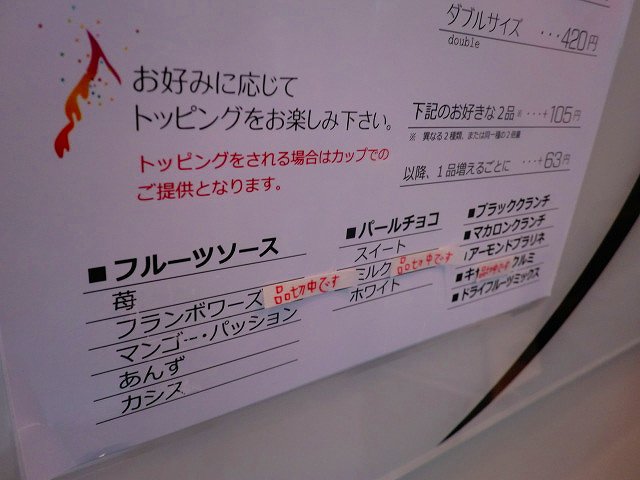 ダブルサイズ ･･･420円
double
お好みに応じて
トッピングをお楽しみ下さい。
下記のお好きな2品※ ･･･+105円
※ 異なる2種類、または同一種の2倍量
トッピングをされる場合はカップでの
ご提供となります。
以降、1品増えるごとに ･･･+63円
■フルーツソース
苺
フランボワーズ 品切中です
マンゴー・パッション
あんず
カシス
■パールチョコ
スイート
ミルク 品切中です
ホワイト
■ブラッククランチ
■マカロンクランチ
アーモンドプラリネ
■キャ 品切中です クルミ
■ドライフルーツミックス